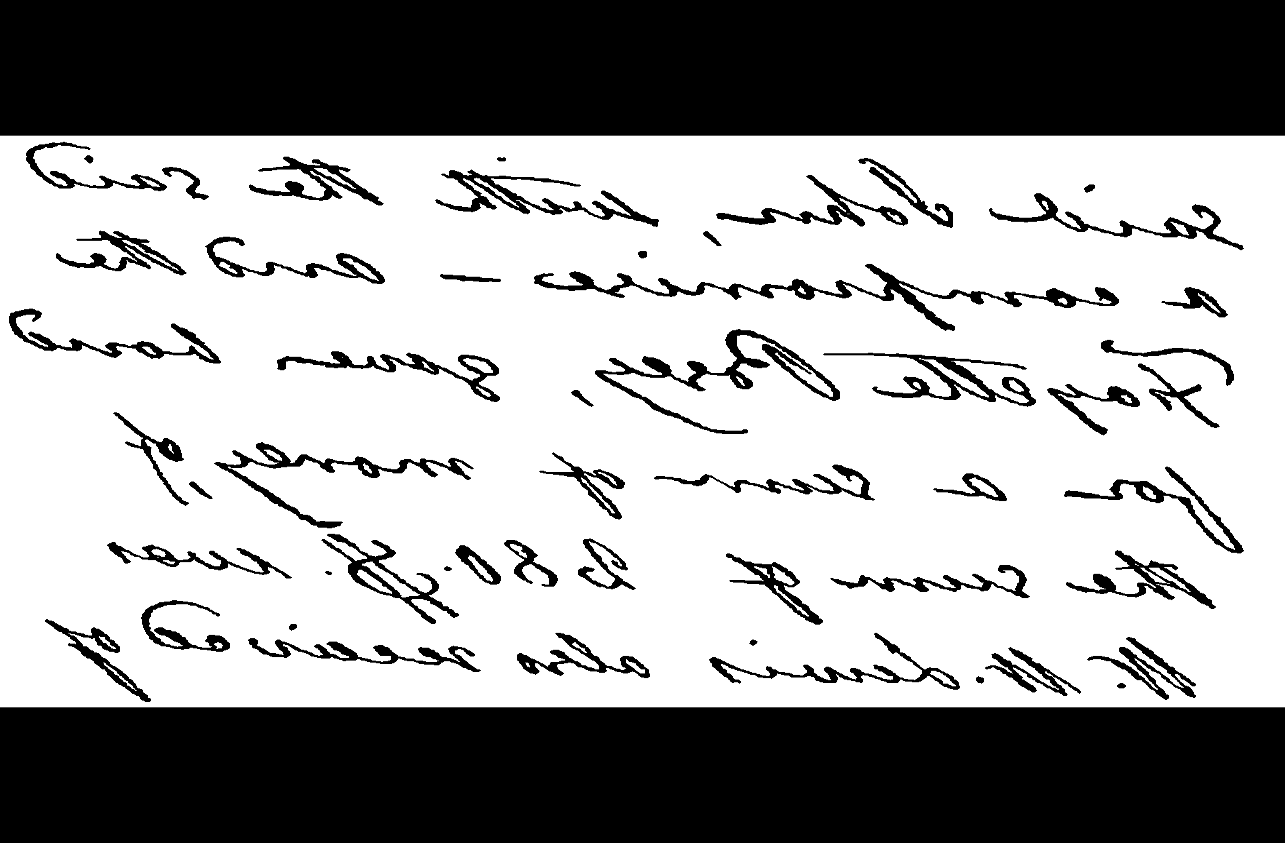 Said John, with the said
a compromise – and the
Fayette Posey, bond
for a sum of money, if
the sum of 80. was
Lewis also received of